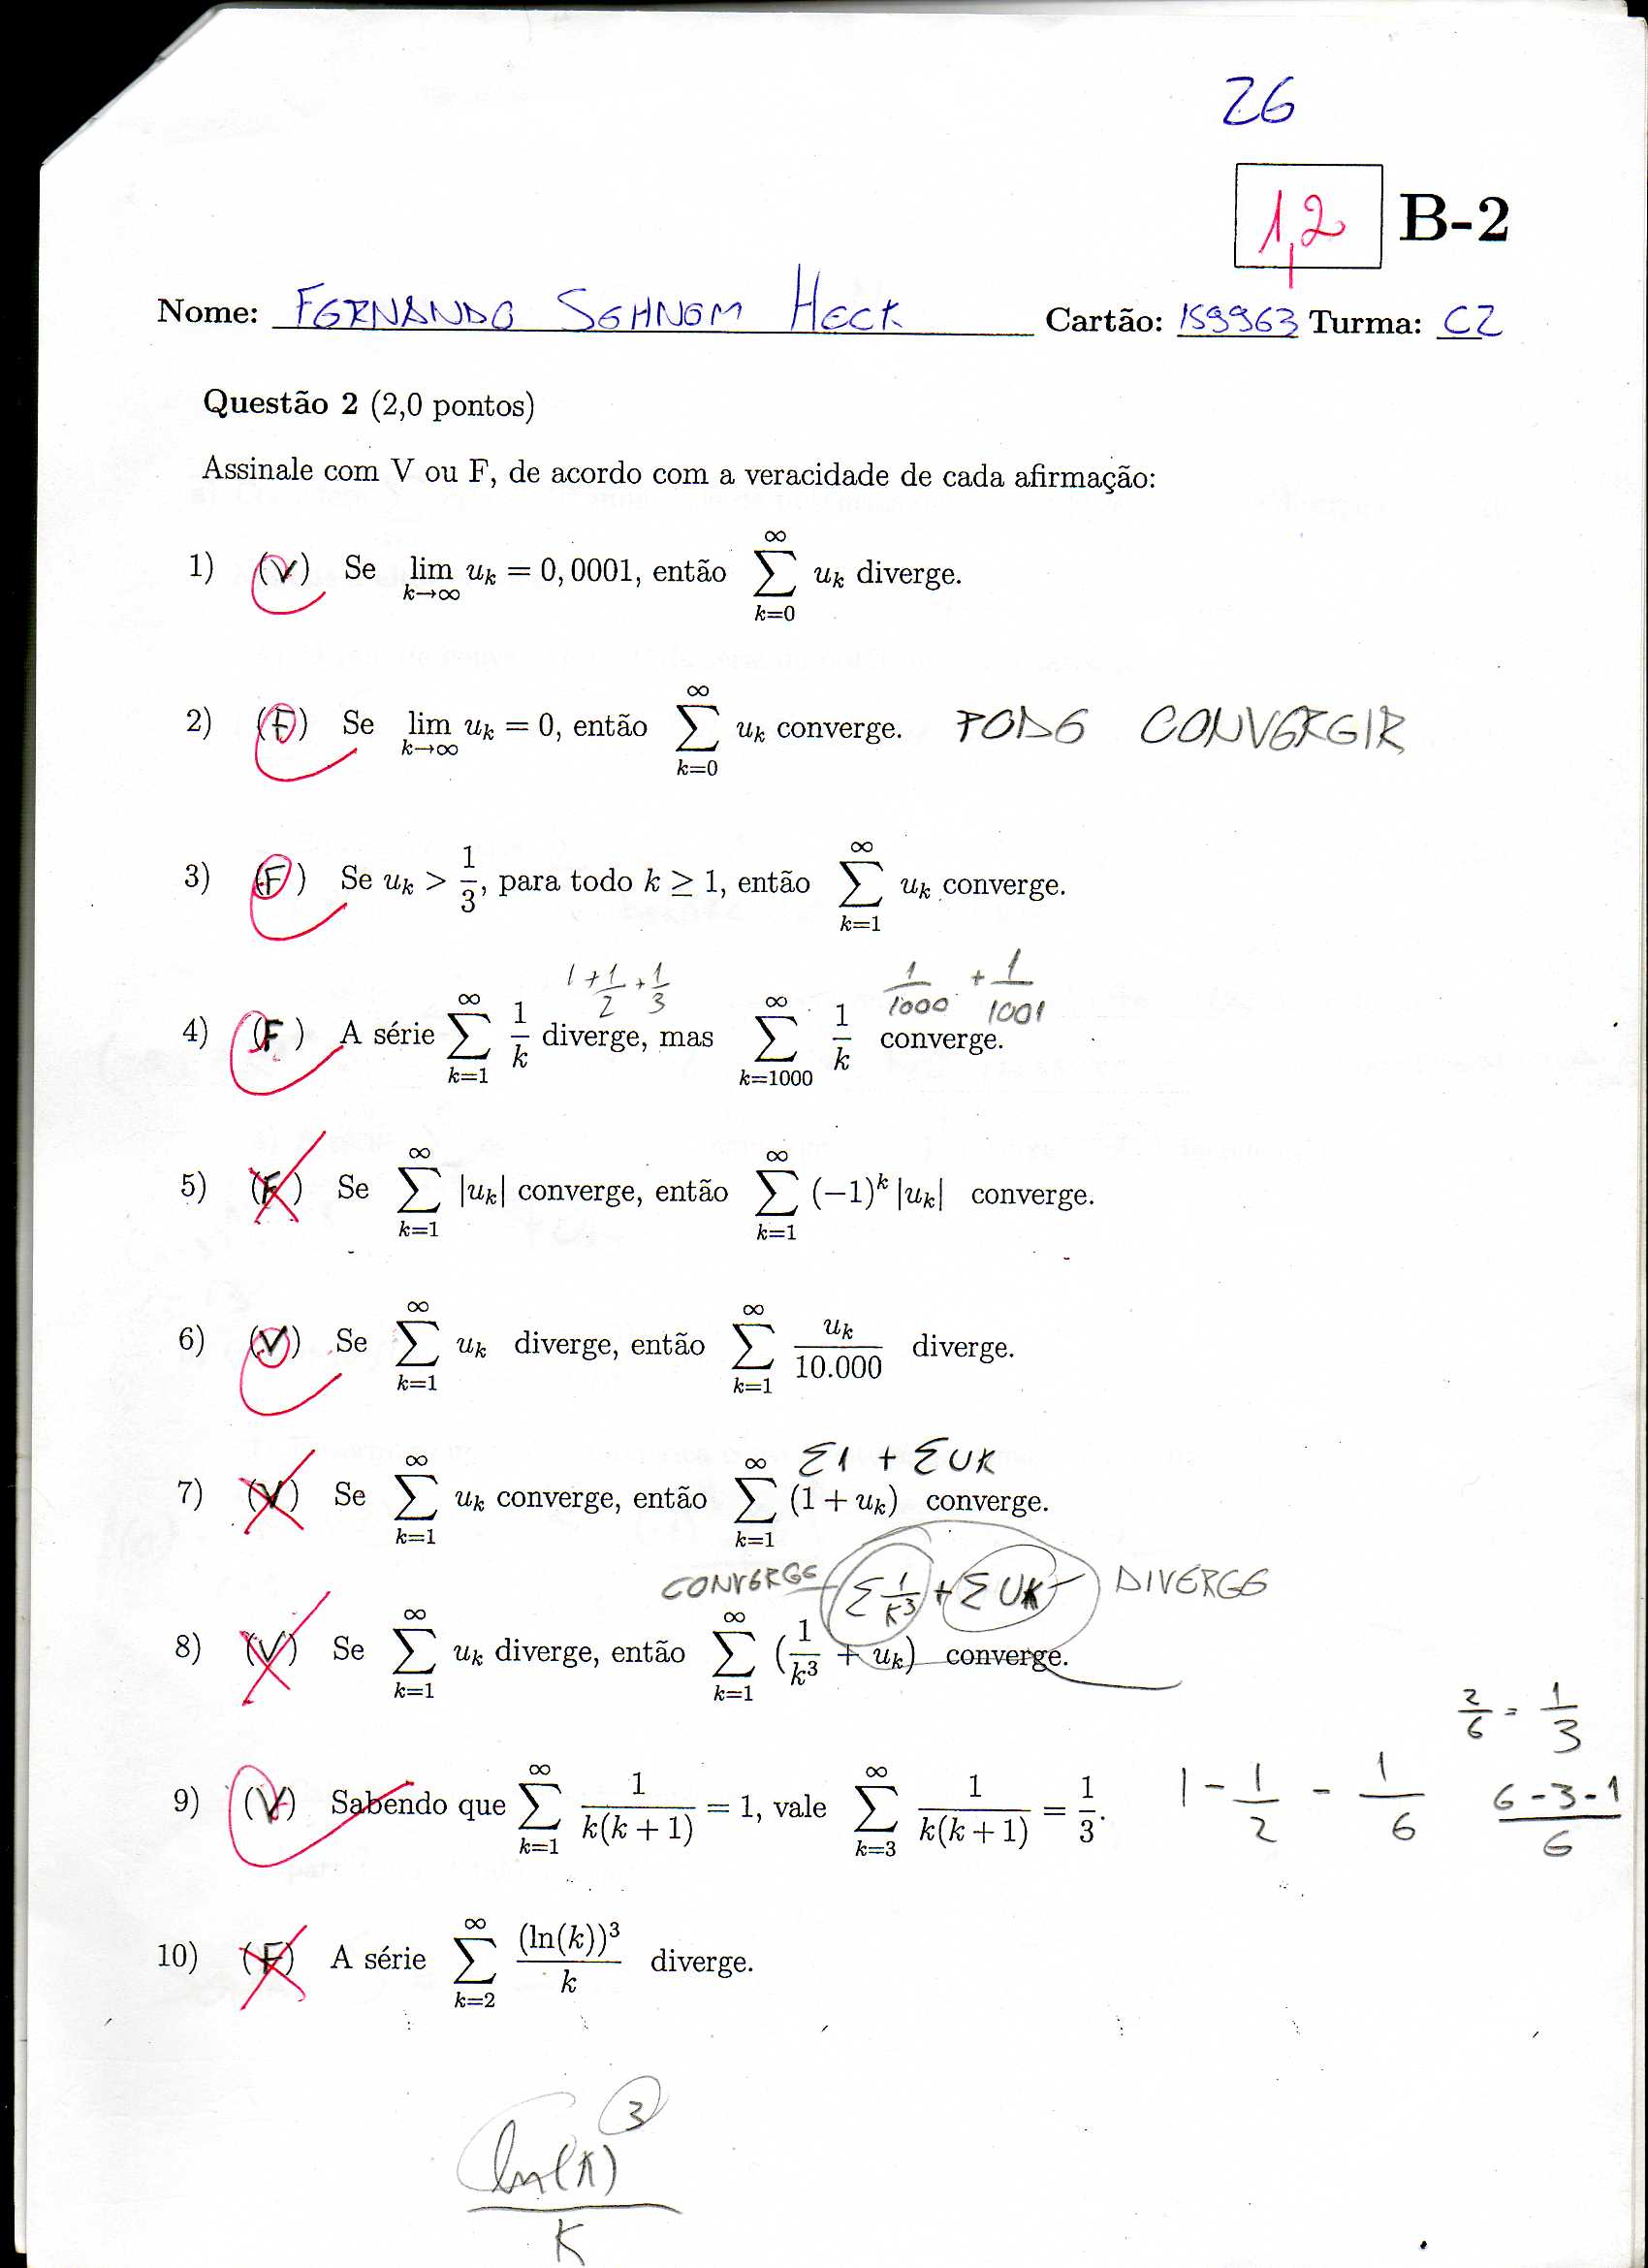 26
1,2 B-2
Nome: FERNANDO SEHNEM HECK Cartão: 159963 Turma: C2
Questão 2 (2,0 pontos)
Assinale com V ou F, de acordo com a veracidade de cada afirmação:
1) (V) Se lim k→∞ u_k = 0,0001, então ∑_{k=0}^{∞} u_k diverge.
2) (F) Se lim k→∞ u_k = 0, então ∑_{k=0}^{∞} u_k converge. PODE CONVERGIR
3) (F) Se u_k > 1/3, para todo k ≥ 1, então ∑_{k=1}^{∞} u_k converge.
1 + 1/2 + 1/3 1/1000 + 1/1001
4) (F) A série ∑_{k=1}^{∞} 1/k diverge, mas ∑_{k=1000}^{∞} 1/k converge.
5) (F) Se ∑_{k=1}^{∞} |u_k| converge, então ∑_{k=1}^{∞} (−1)^k |u_k| converge.
6) (V) Se ∑_{k=1}^{∞} u_k diverge, então ∑_{k=1}^{∞} u_k/10.000 diverge.
Σ1 + ΣUK
7) (V) Se ∑_{k=1}^{∞} u_k converge, então ∑_{k=1}^{∞} (1 + u_k) converge.
CONVERGE Σ 1/K³ + ΣUK DIVERGE
8) (V) Se ∑_{k=1}^{∞} u_k diverge, então ∑_{k=1}^{∞} (1/k³ + u_k) converge.
2/6 = 1/3
9) (V) Sabendo que ∑_{k=1}^{∞} 1/(k(k+1)) = 1, vale ∑_{k=3}^{∞} 1/(k(k+1)) = 1/3. 1 − 1/2 − 1/6 (6-3-1)/6
10) (F) A série ∑_{k=2}^{∞} (ln(k))³/k diverge.
ln(k)³/K